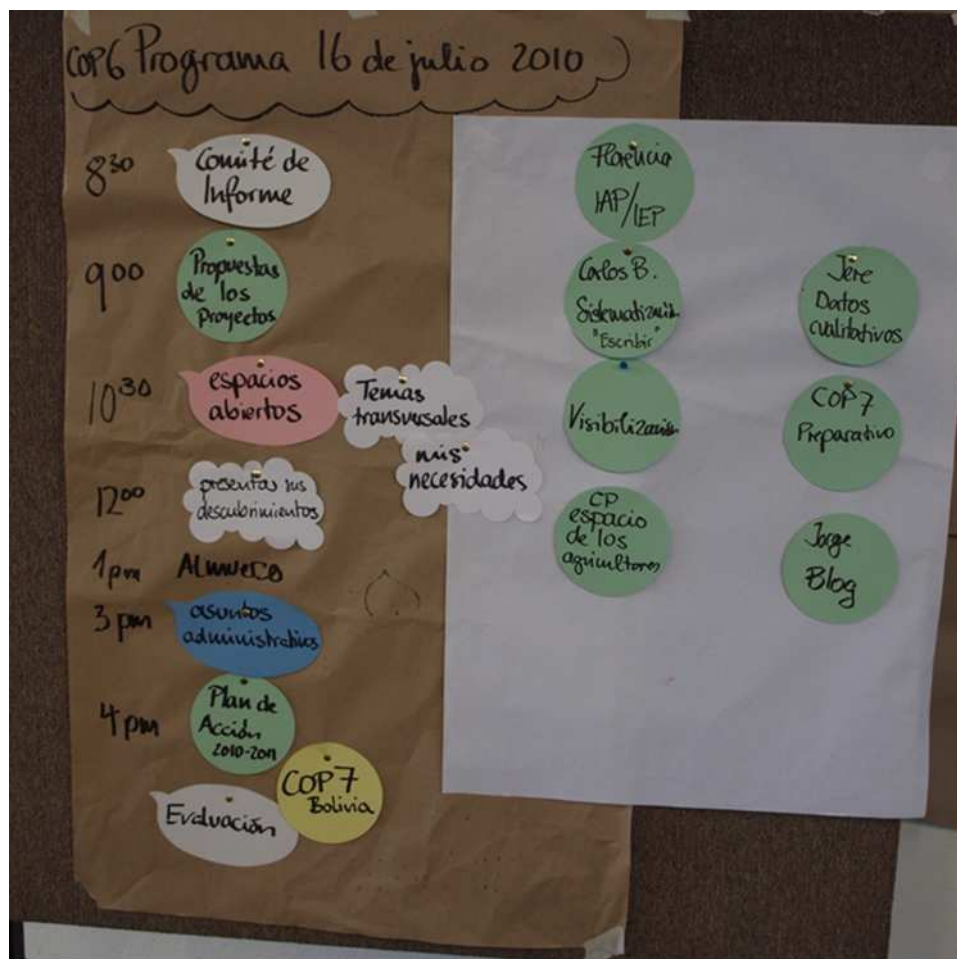 COP6 Programa 16 de julio 2010
8³⁰
Comité de
Informe
9⁰⁰
Propuestas
de los
Proyectos
10³⁰
espacios
abiertos
Temas
transversales
mis
necesidades
12⁰⁰
presentar sus
descubrimientos
1pm
ALMUERZO
3 pm
asuntos
administrativos
4 pm
Plan de
Acción
2010-2011
COP7
Bolivia
Evaluación
Florencia
IAP/IEP
Carlos B.
Sistematización
"Escribir"
Visibilización
CP
espacio
de los
agricultores
Jere
Datos
cualitativos
COP7
Preparativo
Jorge
Blog